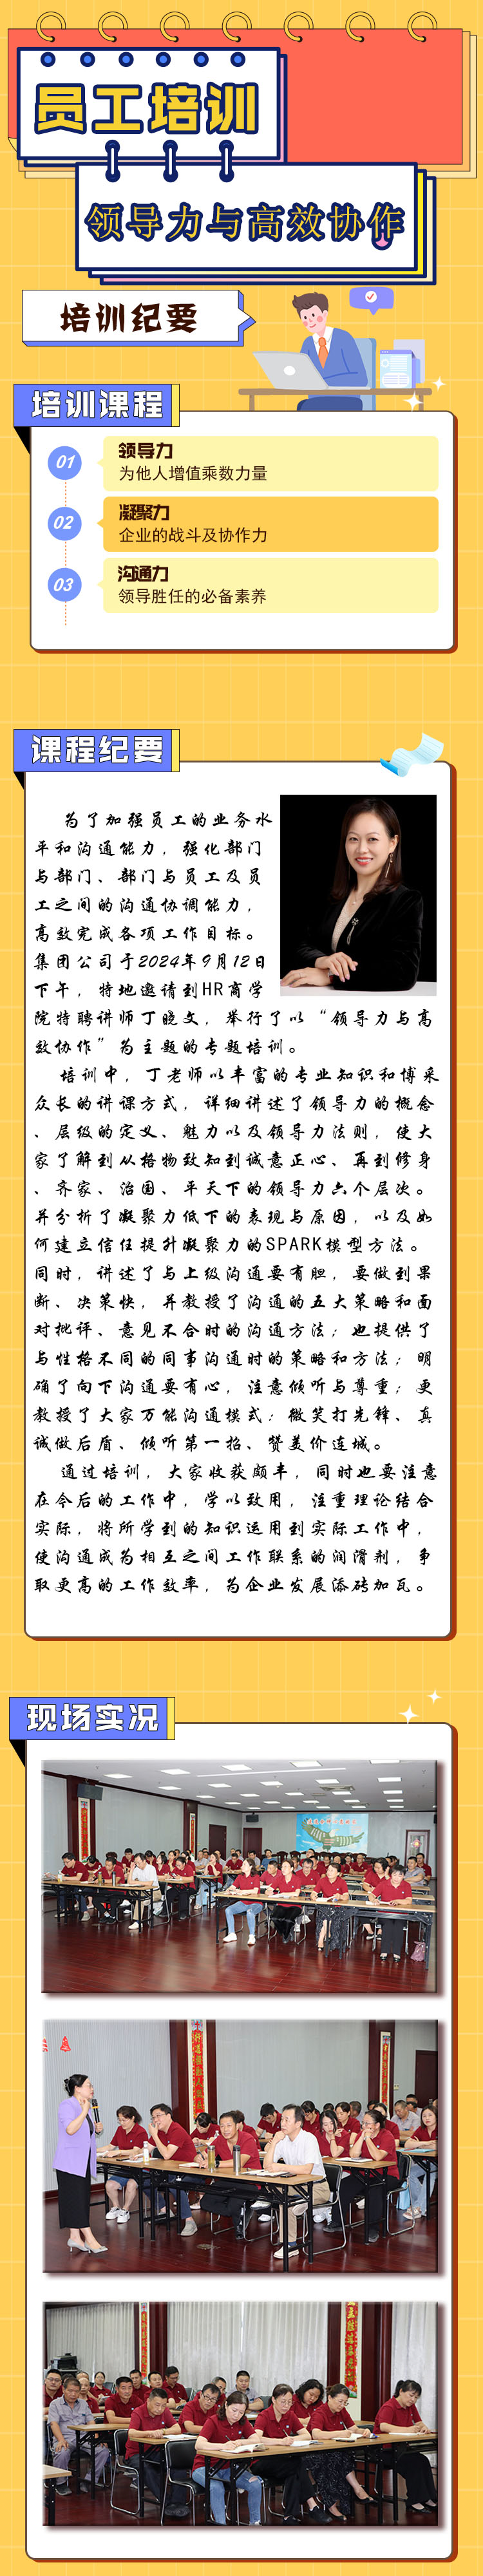 员工培训
领导力与高效协作
培训纪要
培训课程
01
领导力
为他人增值乘数力量
02
凝聚力
企业的战斗及协作力
03
沟通力
领导胜任的必备素养
课程纪要
为了加强员工的业务水
平和沟通能力，强化部门
与部门、部门与员工及员
工之间的沟通协调能力，
高效完成各项工作目标。
集团公司于2024年9月12日
下午，特地邀请到HR商学
院特聘讲师丁晓文，举行了以“领导力与高
效协作”为主题的专题培训。
培训中，丁老师以丰富的专业知识和博采
众长的讲课方式，详细讲述了领导力的概念
、层级的定义、魅力以及领导力法则，使大
家了解到从格物致知到诚意正心、再到修身
、齐家、治国、平天下的领导力六个层次。
并分析了凝聚力低下的表现与原因，以及如
何建立信任提升凝聚力的SPARK模型方法。
同时，讲述了与上级沟通要有胆，要做到果
断、决策快，并教授了沟通的五大策略和面
对批评、意见不合时的沟通方法；也提供了
与性格不同的同事沟通时的策略和方法；明
确了向下沟通要有心，注意倾听与尊重；更
教授了大家万能沟通模式：微笑打先锋、真
诚做后盾、倾听第一招、赞美价连城。
通过培训，大家收获颇丰，同时也要注意
在今后的工作中，学以致用，注重理论结合
实际，将所学到的知识运用到实际工作中，
使沟通成为相互之间工作联系的润滑剂，争
取更高的工作效率，为企业发展添砖加瓦。
现场实况